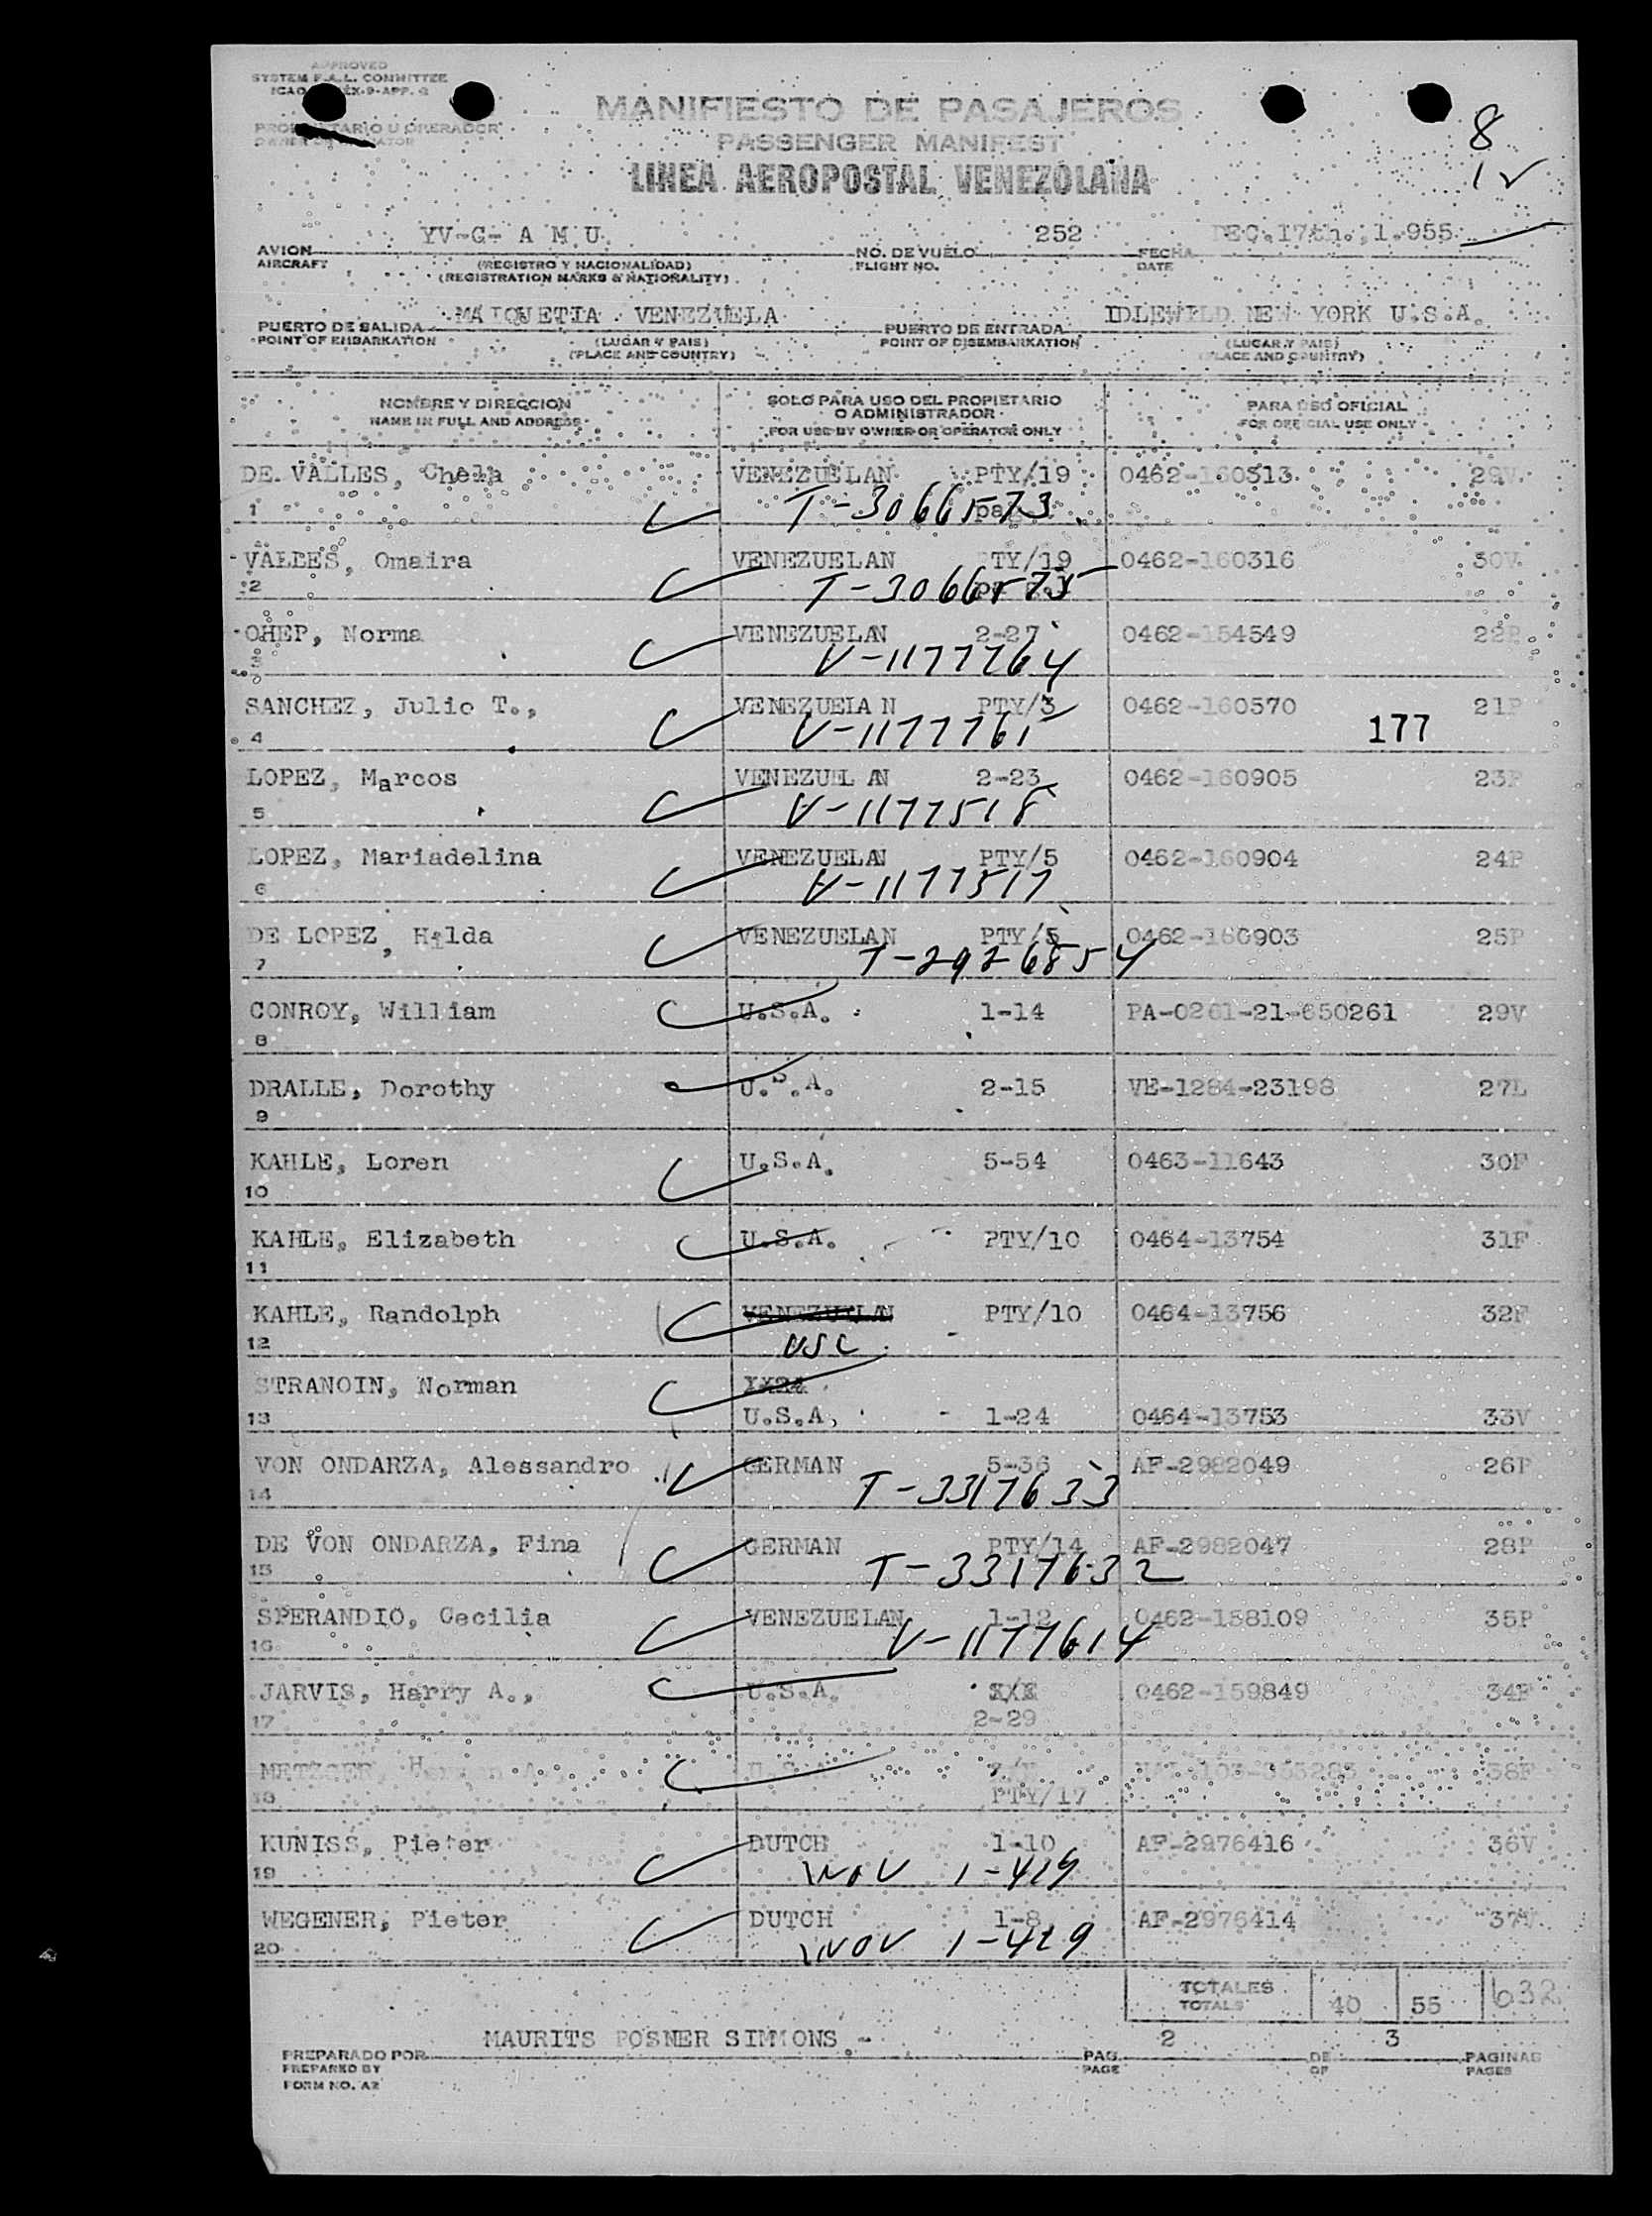 APPROVED
SYSTEM F.A.L. COMMITTEE
ICAO
MANIFIESTO DE PASAJEROS
PASSENGER MANIFEST
LINEA AEROPOSTAL VENEZOLANA
8
1
YV-G- A M U 252 DEC.17th.,1.955
AVION NO. DE VUELO FECHA
AIRCRAFT (REGISTRO Y NACIONALIDAD) FLIGHT NO. DATE
(REGISTRATION MARKS & NATIONALITY)
MAIQUETIA VENEZUELA IDLEWILD NEW YORK U.S.A.
PUERTO DE SALIDA PUERTO DE ENTRADA
POINT OF EMBARKATION (LUGAR Y PAIS) POINT OF DISEMBARKATION (LUGAR Y PAIS)
(PLACE AND COUNTRY) (PLACE AND COUNTRY)
NOMBRE Y DIRECCION SOLO PARA USO DEL PROPIETARIO O ADMINISTRADOR PARA USO OFICIAL
NAME IN FULL AND ADDRESS FOR USE BY OWNER OR OPERATOR ONLY FOR OFFICIAL USE ONLY
DE VALLES, Chela VENEZUELAN PTY/19 0462-160313 29V
1 T-3066573
VALLES, Omaira VENEZUELAN PTY/19 0462-160316 30V
2 T-3066575
OHEP, Norma VENEZUELAN 2-27 0462-154549 22P
3 V-1177764
SANCHEZ, Julio T., VENEZUELA N PTY/3 0462-160570 21P
4 V-1177765 177
LOPEZ, Marcos VENEZUEL AN 2-23 0462-160905 23P
5 V-1177518
LOPEZ, Mariadelina VENEZUELAN PTY/5 0462-160904 24P
6 V-1177517
DE LOPEZ, Hilda VENEZUELAN PTY/5 0462-160903 25P
7 T-2926854
CONROY, William U.S.A. 1-14 PA-0261-21-650261 29V
8
DRALLE, Dorothy U.S.A. 2-15 VE-1284-23198 27L
9
KAHLE, Loren U.S.A. 5-54 0463-11643 30F
10
KAHLE, Elizabeth U.S.A. PTY/10 0464-13754 31F
11
KAHLE, Randolph VENEZUELAN PTY/10 0464-13756 32F
12 USC
STRANOIN, Norman
13 U.S.A, 1-24 0464-13753 33V
VON ONDARZA, Alessandro GERMAN 5-36 AF-2982049 26P
14 T-3317633
DE VON ONDARZA, Fina GERMAN PTY/14 AF-2982047 28P
15 T-3317632
SPERANDIO, Cecilia VENEZUELAN 1-12 0462-158109 35P
16 V-1177614
JARVIS, Harry A., U.S.A. 0462-159849 34F
17 2-29
METZGER, 38F
18 PTY/17
KUNISS, Pieter DUTCH 1-10 AF-2976416 36V
19 WOV 1-429
WEGENER, Pieter DUTCH 1-8 AF-2976414 37V
20 WOV 1-429
TOTALES
TOTALS 40 55 632
MAURITS POSNER SIMMONS - 2 3
PREPARADO POR PAG. DE PAGINAS
PREPARED BY PAGE OF PAGES
FORM NO. A2